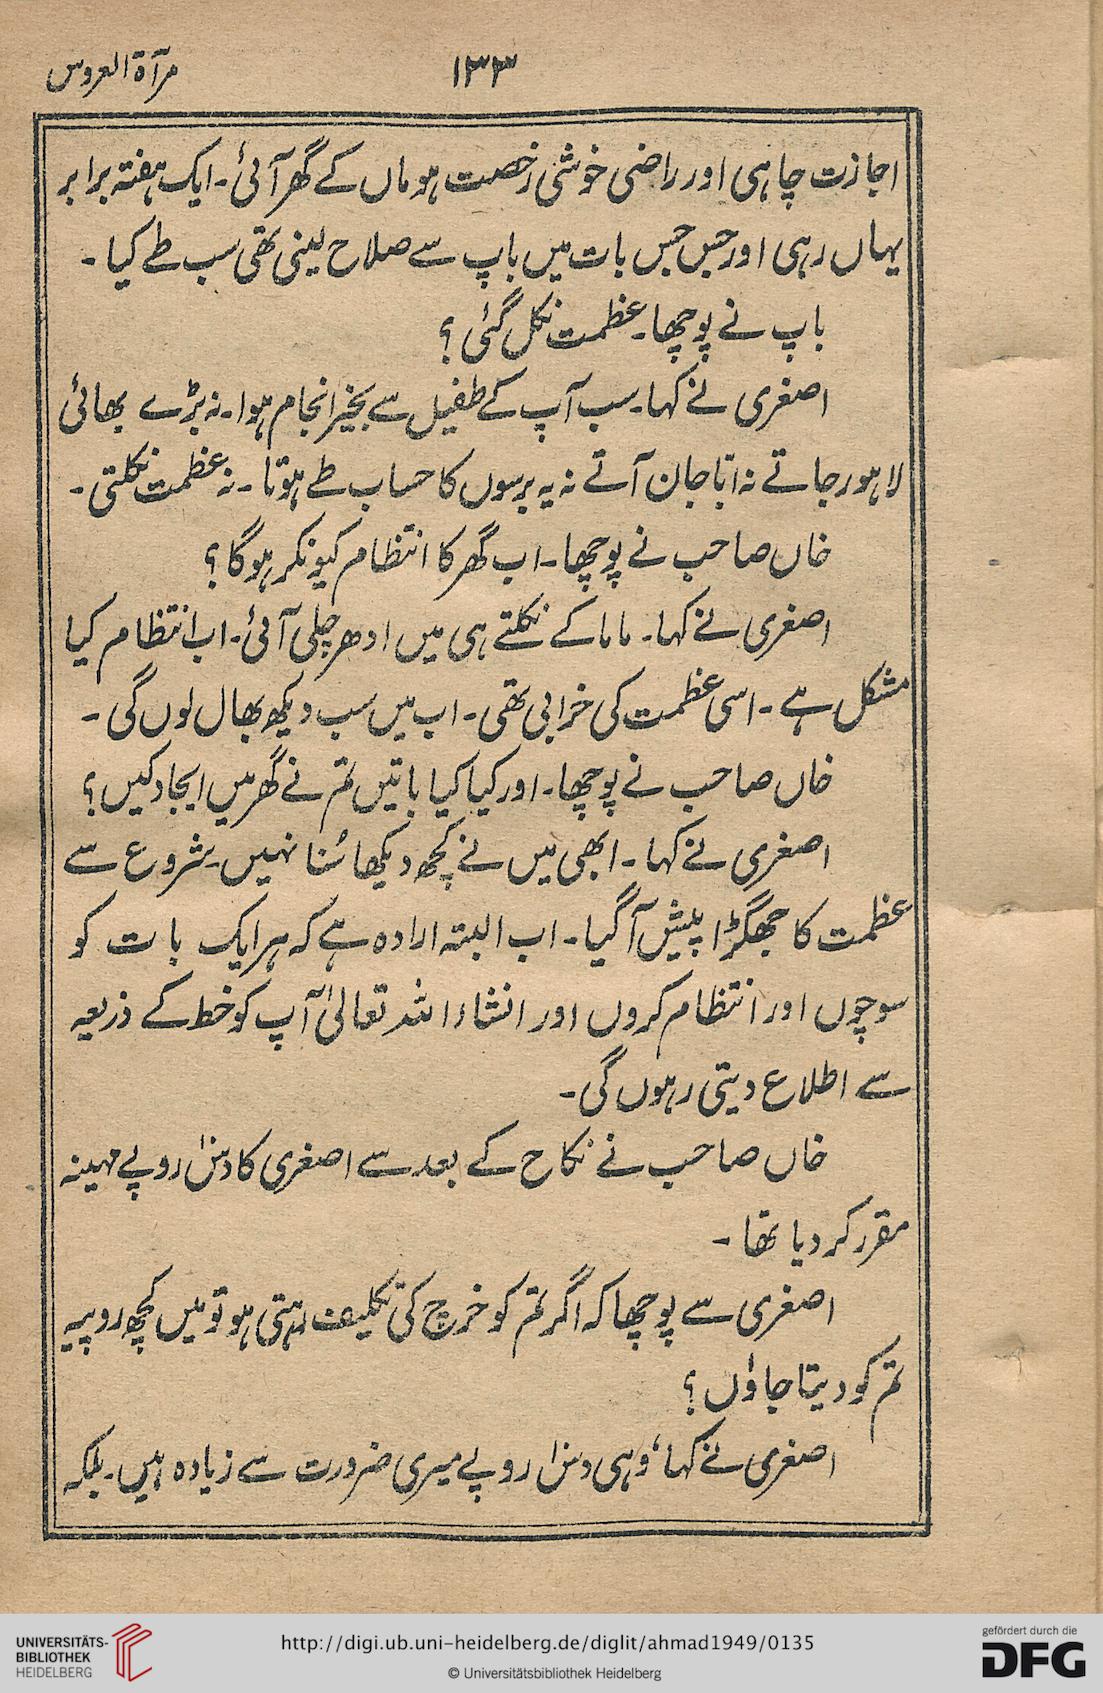 مرآۃ العروس
۱۳۳
اجازت چاہی اور راضی خوشی رخصت ہو ماں کے گھر آئی۔ ایک ہفتہ برابر
یہاں رہی اور جس جس بات میں باپ سے صلاح لینی تھی سب طے کیا۔
باپ نے پوچھا۔ عظمت نکل گئی؟
اصغری نے کہا۔ سب آپ کے طفیل سے بخیر انجام ہوا۔ نہ بڑے بھائی
لاہور جاتے نہ ابّا جان آتے نہ یہ برسوں کا حساب طے ہوتا۔ نہ عظمت نکلتی۔
خاں صاحب نے پوچھا۔ اب گھر کا انتظام کیونکر ہوگا؟
اصغری نے کہا۔ ماما کے نکلتے ہی میں ادھر چلی آئی۔ اب انتظام کیا
مشکل ہے۔ اسی عظمت کی خرابی تھی۔ اب میں سب دیکھ بھال لوں گی۔
خاں صاحب نے پوچھا۔ اور کیا کیا باتیں تم نے گھر میں ایجاد کیں؟
اصغری نے کہا۔ ابھی میں نے کچھ دیکھا سُنا نہیں۔ شروع سے
عظمت کا جھگڑا پیش آگیا۔ اب البتہ ارادہ ہے کہ ہر ایک بات کو
سوچوں اور انتظام کروں اور انشاء اللہ تعالیٰ آپ کو خط کے ذریعہ
سے اطلاع دیتی رہوں گی۔
خاں صاحب نے نکاح کے بعد سے اصغری کا دس روپے مہینہ
مقرر کر دیا تھا۔
اصغری سے پوچھا کہ اگر تم کو خرچ کی تکلیف رہتی ہو تو میں کچھ روپیہ
تم کو دیتا جاؤں؟
اصغری نے کہا، وہی دس روپے میری ضرورت سے زیادہ ہیں۔ بلکہ
UNIVERSITÄTS-
BIBLIOTHEK
HEIDELBERG
http://digi.ub.uni-heidelberg.de/diglit/ahmad1949/0135
© Universitätsbibliothek Heidelberg
gefördert durch die
DFG